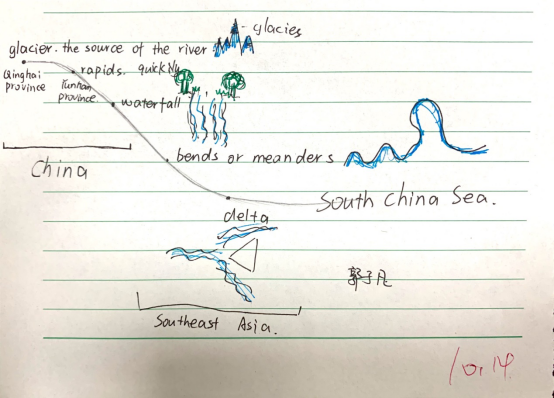 glacies
glacier. the source of the river
Qinghai province
rapids. quickly
Yunnan province.
waterfall
China
bends or meanders
South China Sea.
delta
郭子凡
Southeast Asia.
10.14